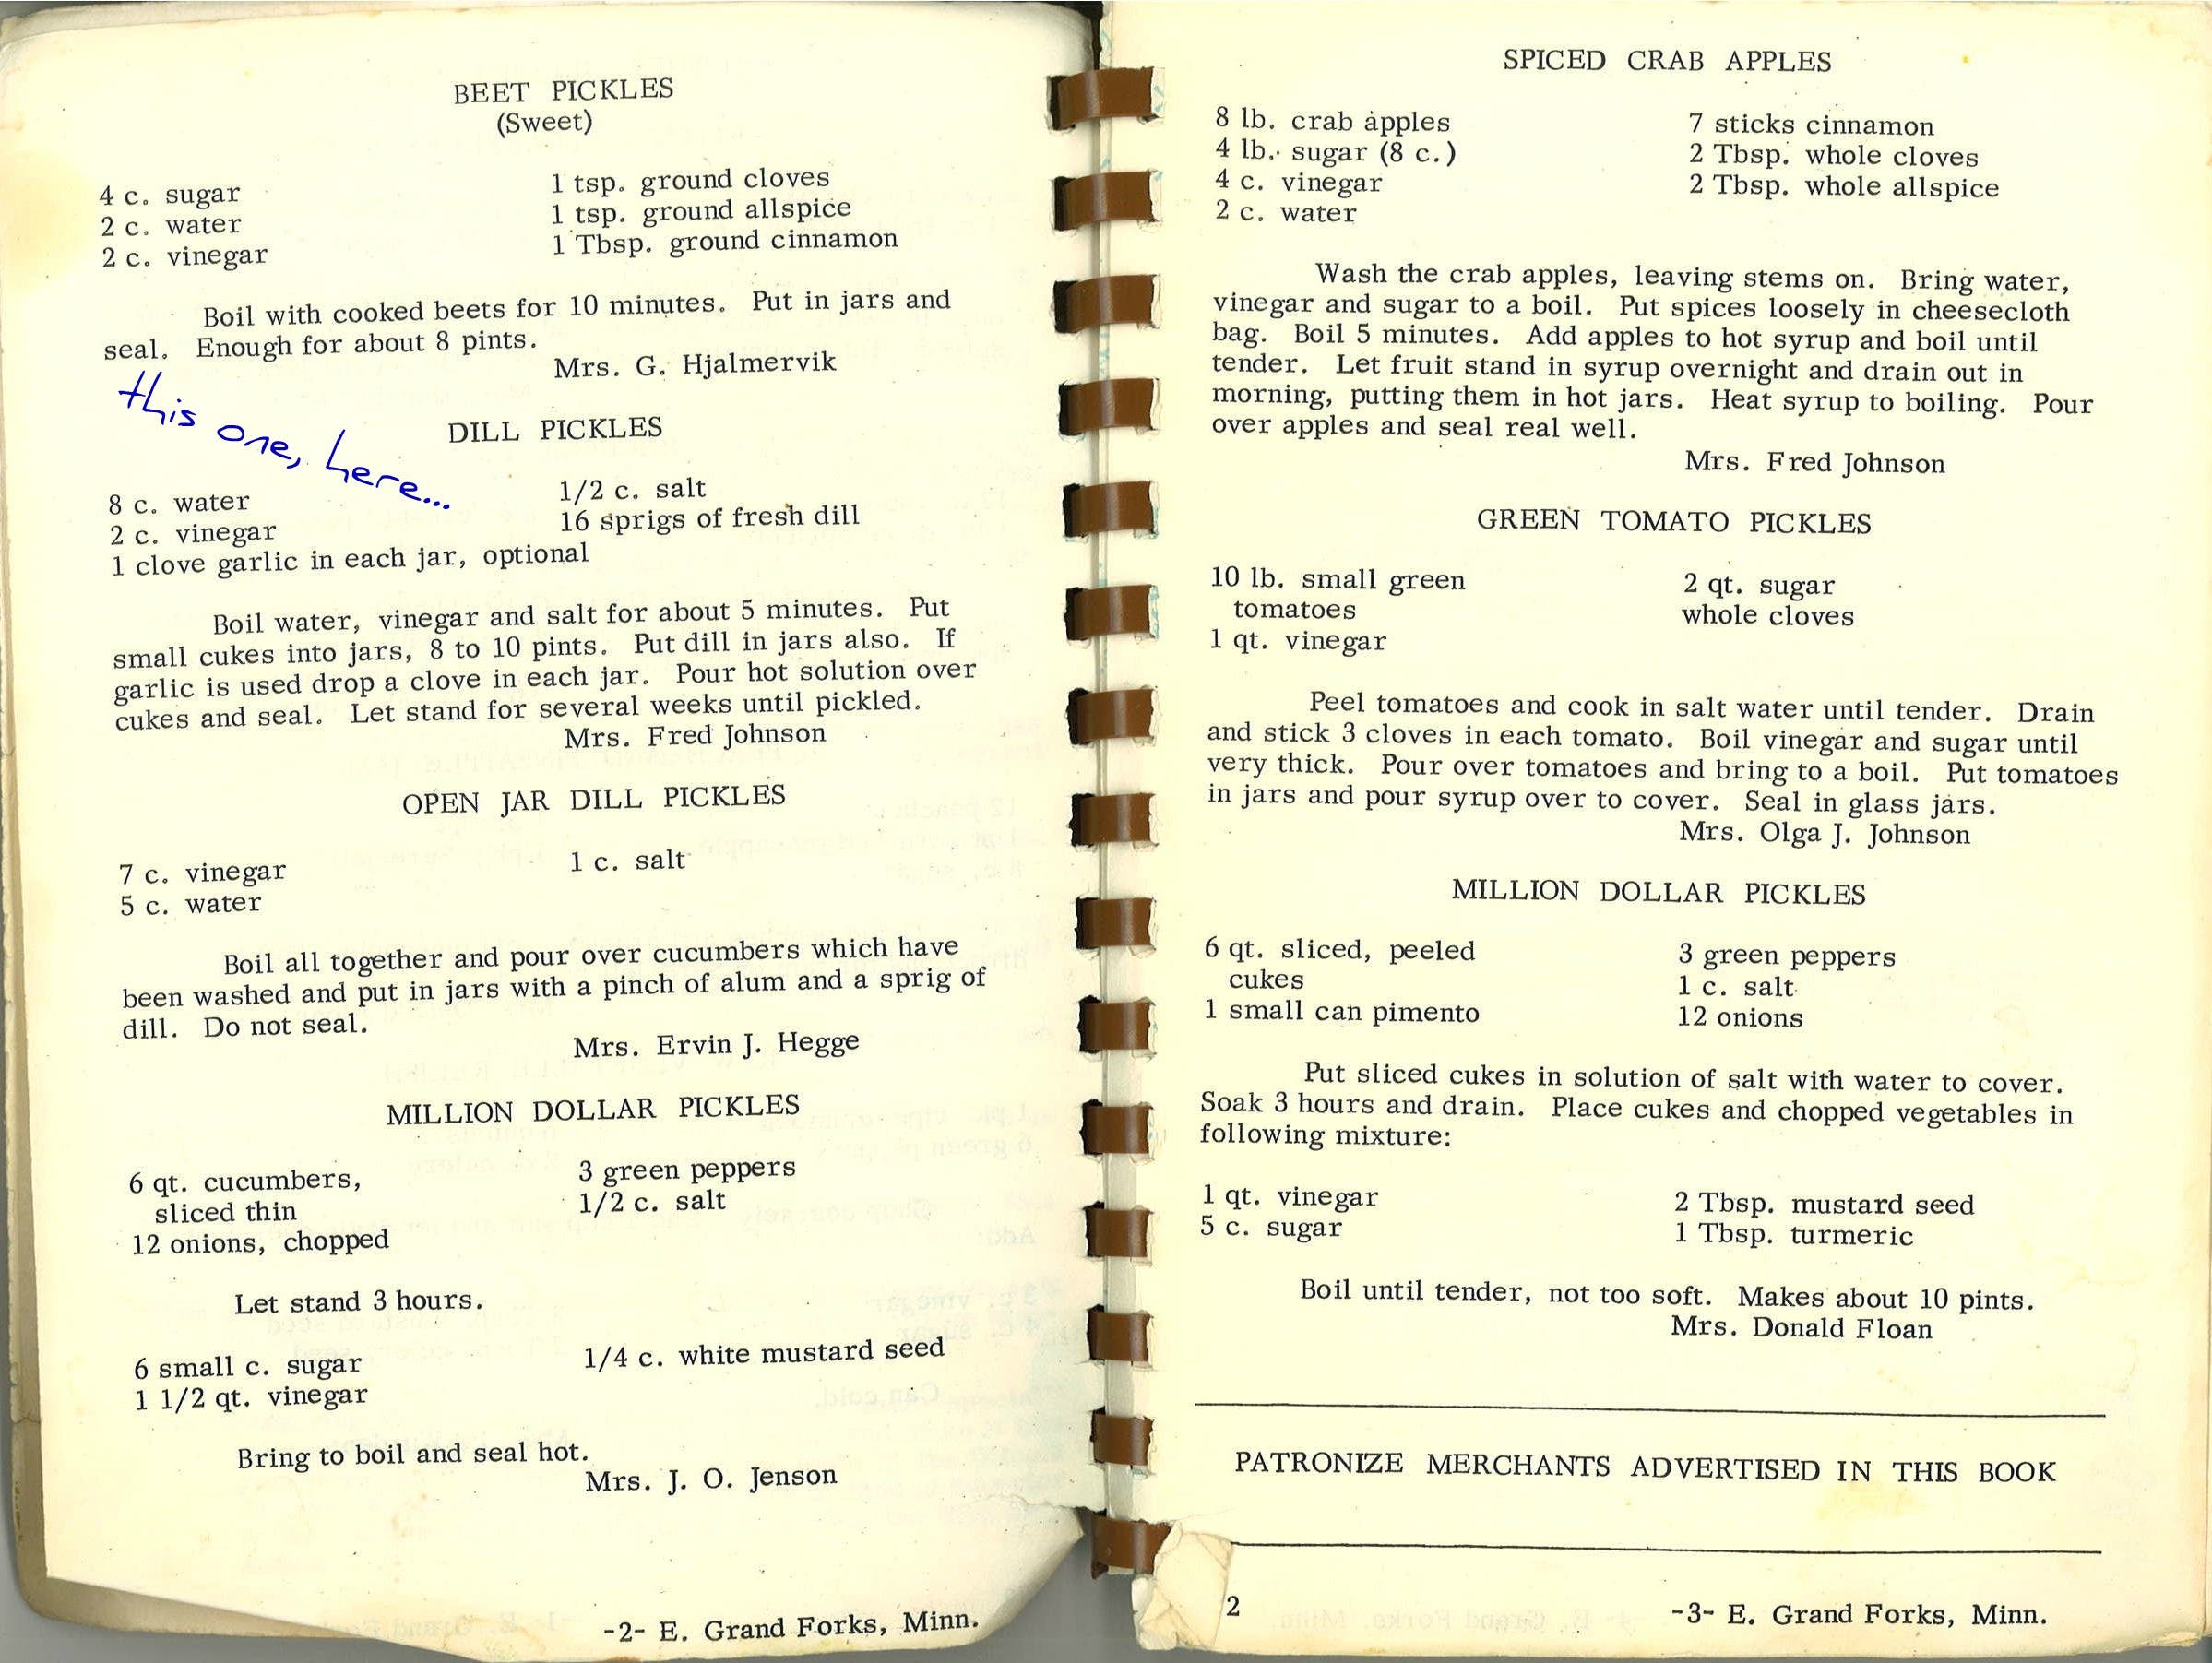 BEET PICKLES
(Sweet)
4 c. sugar
2 c. water
2 c. vinegar
1 tsp. ground cloves
1 tsp. ground allspice
1 Tbsp. ground cinnamon
Boil with cooked beets for 10 minutes. Put in jars and
seal. Enough for about 8 pints.
Mrs. G. Hjalmervik
this one, here...
DILL PICKLES
8 c. water
2 c. vinegar
1 clove garlic in each jar, optional
1/2 c. salt
16 sprigs of fresh dill
Boil water, vinegar and salt for about 5 minutes. Put
small cukes into jars, 8 to 10 pints. Put dill in jars also. If
garlic is used drop a clove in each jar. Pour hot solution over
cukes and seal. Let stand for several weeks until pickled.
Mrs. Fred Johnson
OPEN JAR DILL PICKLES
7 c. vinegar
5 c. water
1 c. salt
Boil all together and pour over cucumbers which have
been washed and put in jars with a pinch of alum and a sprig of
dill. Do not seal.
Mrs. Ervin J. Hegge
MILLION DOLLAR PICKLES
6 qt. cucumbers,
sliced thin
12 onions, chopped
3 green peppers
1/2 c. salt
Let stand 3 hours.
6 small c. sugar
1 1/2 qt. vinegar
1/4 c. white mustard seed
Bring to boil and seal hot.
Mrs. J. O. Jenson
-2- E. Grand Forks, Minn.
SPICED CRAB APPLES
8 lb. crab apples
4 lb. sugar (8 c.)
4 c. vinegar
2 c. water
7 sticks cinnamon
2 Tbsp. whole cloves
2 Tbsp. whole allspice
Wash the crab apples, leaving stems on. Bring water,
vinegar and sugar to a boil. Put spices loosely in cheesecloth
bag. Boil 5 minutes. Add apples to hot syrup and boil until
tender. Let fruit stand in syrup overnight and drain out in
morning, putting them in hot jars. Heat syrup to boiling. Pour
over apples and seal real well.
Mrs. Fred Johnson
GREEN TOMATO PICKLES
10 lb. small green
tomatoes
1 qt. vinegar
2 qt. sugar
whole cloves
Peel tomatoes and cook in salt water until tender. Drain
and stick 3 cloves in each tomato. Boil vinegar and sugar until
very thick. Pour over tomatoes and bring to a boil. Put tomatoes
in jars and pour syrup over to cover. Seal in glass jars.
Mrs. Olga J. Johnson
MILLION DOLLAR PICKLES
6 qt. sliced, peeled
cukes
1 small can pimento
3 green peppers
1 c. salt
12 onions
Put sliced cukes in solution of salt with water to cover.
Soak 3 hours and drain. Place cukes and chopped vegetables in
following mixture:
1 qt. vinegar
5 c. sugar
2 Tbsp. mustard seed
1 Tbsp. turmeric
Boil until tender, not too soft. Makes about 10 pints.
Mrs. Donald Floan
PATRONIZE MERCHANTS ADVERTISED IN THIS BOOK
2
-3- E. Grand Forks, Minn.